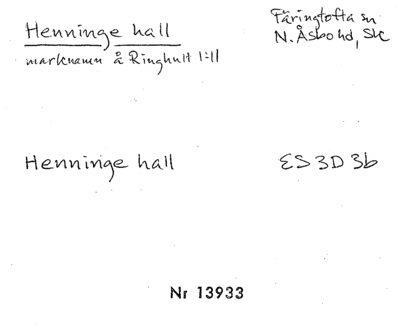 Henninge hall
Färingtofta sn
N. Åsbo hd, Sk
marknamn å Ringhult 1:11
Henninge hall
ES 3D 3b
Nr 13933